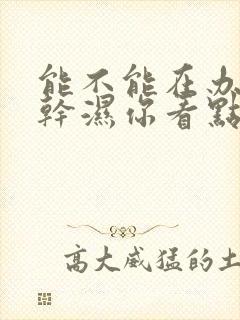 能不能在办
幹濕你看點
高大威猛的土